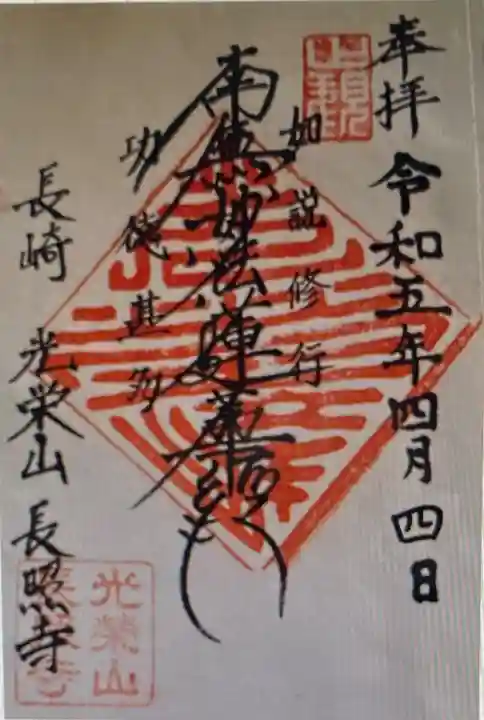 奉拝 令和五年四月四日
如説修行
南無妙法蓮華経
功徳甚多
長崎 光栄山 長照寺
光榮山
長照寺